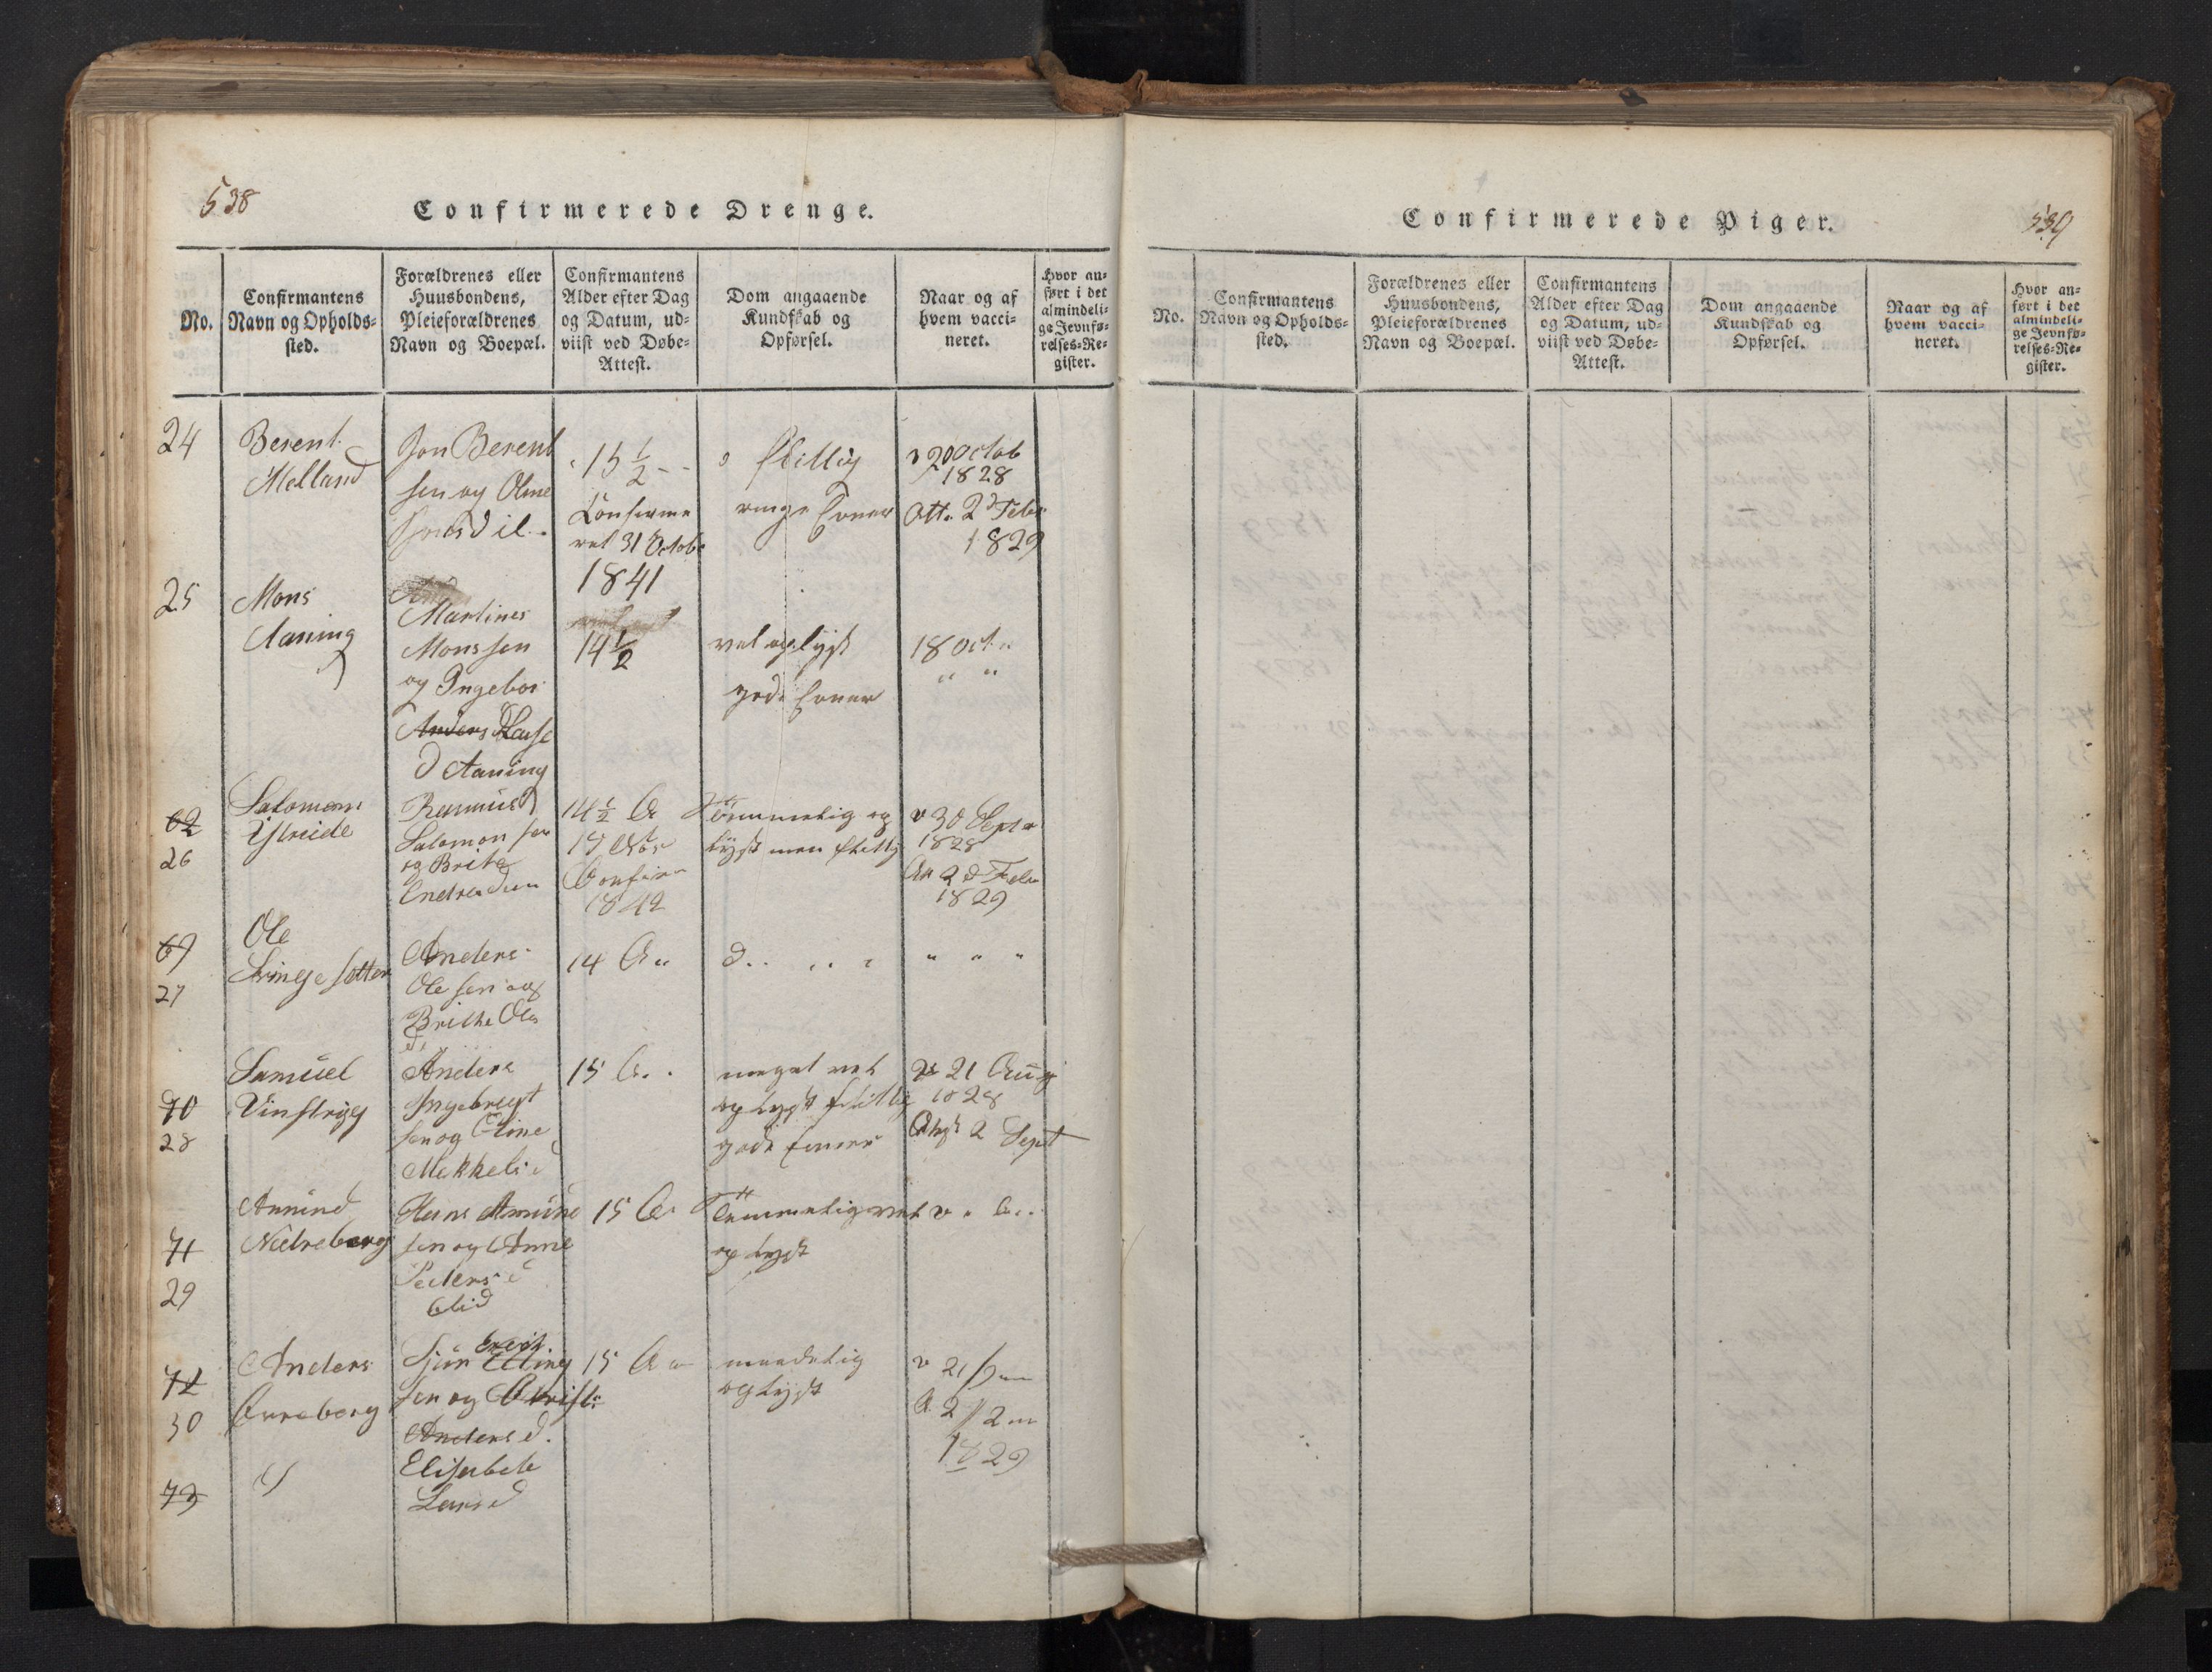 538
Confirmerede Drenge.
No.
Confirmantens
Navn og Opholds-
sted.
Forældrenes eller
Huusbondens,
Pleieforældrenes
Navn og Boepæl.
Confirmantens
Alder efter Dag
og Datum, ud-
viist ved Døbe-
Attest.
Dom angaaende
Kundskab og
Opførsel.
Naar og af
hvem vacci-
neret.
Hvor an-
ført i det
almindeli-
ge Jevnfø-
relses-Re-
gister.
24
Berent
Melland
Jon Berent
sen og Oline
15 1/2
Confirme
ret 31 Octob
1841
flittig
ringe Evner
v 20 Octob
1828
Att. 2d Febr
1829
25
Mons
Aaning
Martines
Monssen
og Ingebor
Anders Larse
d Aaning
14 1/2
vel oplyst
gode Evner
18 Oct
62
26
Salomon
Rasmus
Salomon sen
og Brite
Endresdon
14 1/2 A
Confir
1842
Temmelig op
lyst men flittig
v 30 Sept
1828
An 2 d Febr
1829
69
27
Ole
Anders
Ole sen og
Brithe Ols
d.
14 A
d..
" " "
70
28
Samuel
Anders
Ingebregt
sen og Eline
Mekkelsd
15 A.
meget vel
oplyst flittig
gode Evner
v 21 Aug
1828
2 Sept
71
29
Amund
Nedreberg
Hans Amund
sen og Anne
Peders d
15 A
Temmelig vel
oplyst
v " A..
72
30
Anders
Evreberg
Sjur Elling
sen og Christi
Anders d.
Elisabet
Larsd
15 A
maadelig
oplyst
v 21
A. 2
1829
73
Confirmerede Piger.
539
No.
Confirmantens
Navn og Opholds-
sted.
Forældrenes eller
Huusbondens,
Pleieforældrenes
Navn og Boepæl.
Confirmantens
Alder efter Dag
og Datum, ud-
viist ved Døbe-
Attest.
Dom angaaende
Kundskab og
Opførsel.
Naar og af
hvem vacci-
neret.
Hvor an-
ført i det
almindeli-
ge Jevnfø-
relses-Re-
gister.